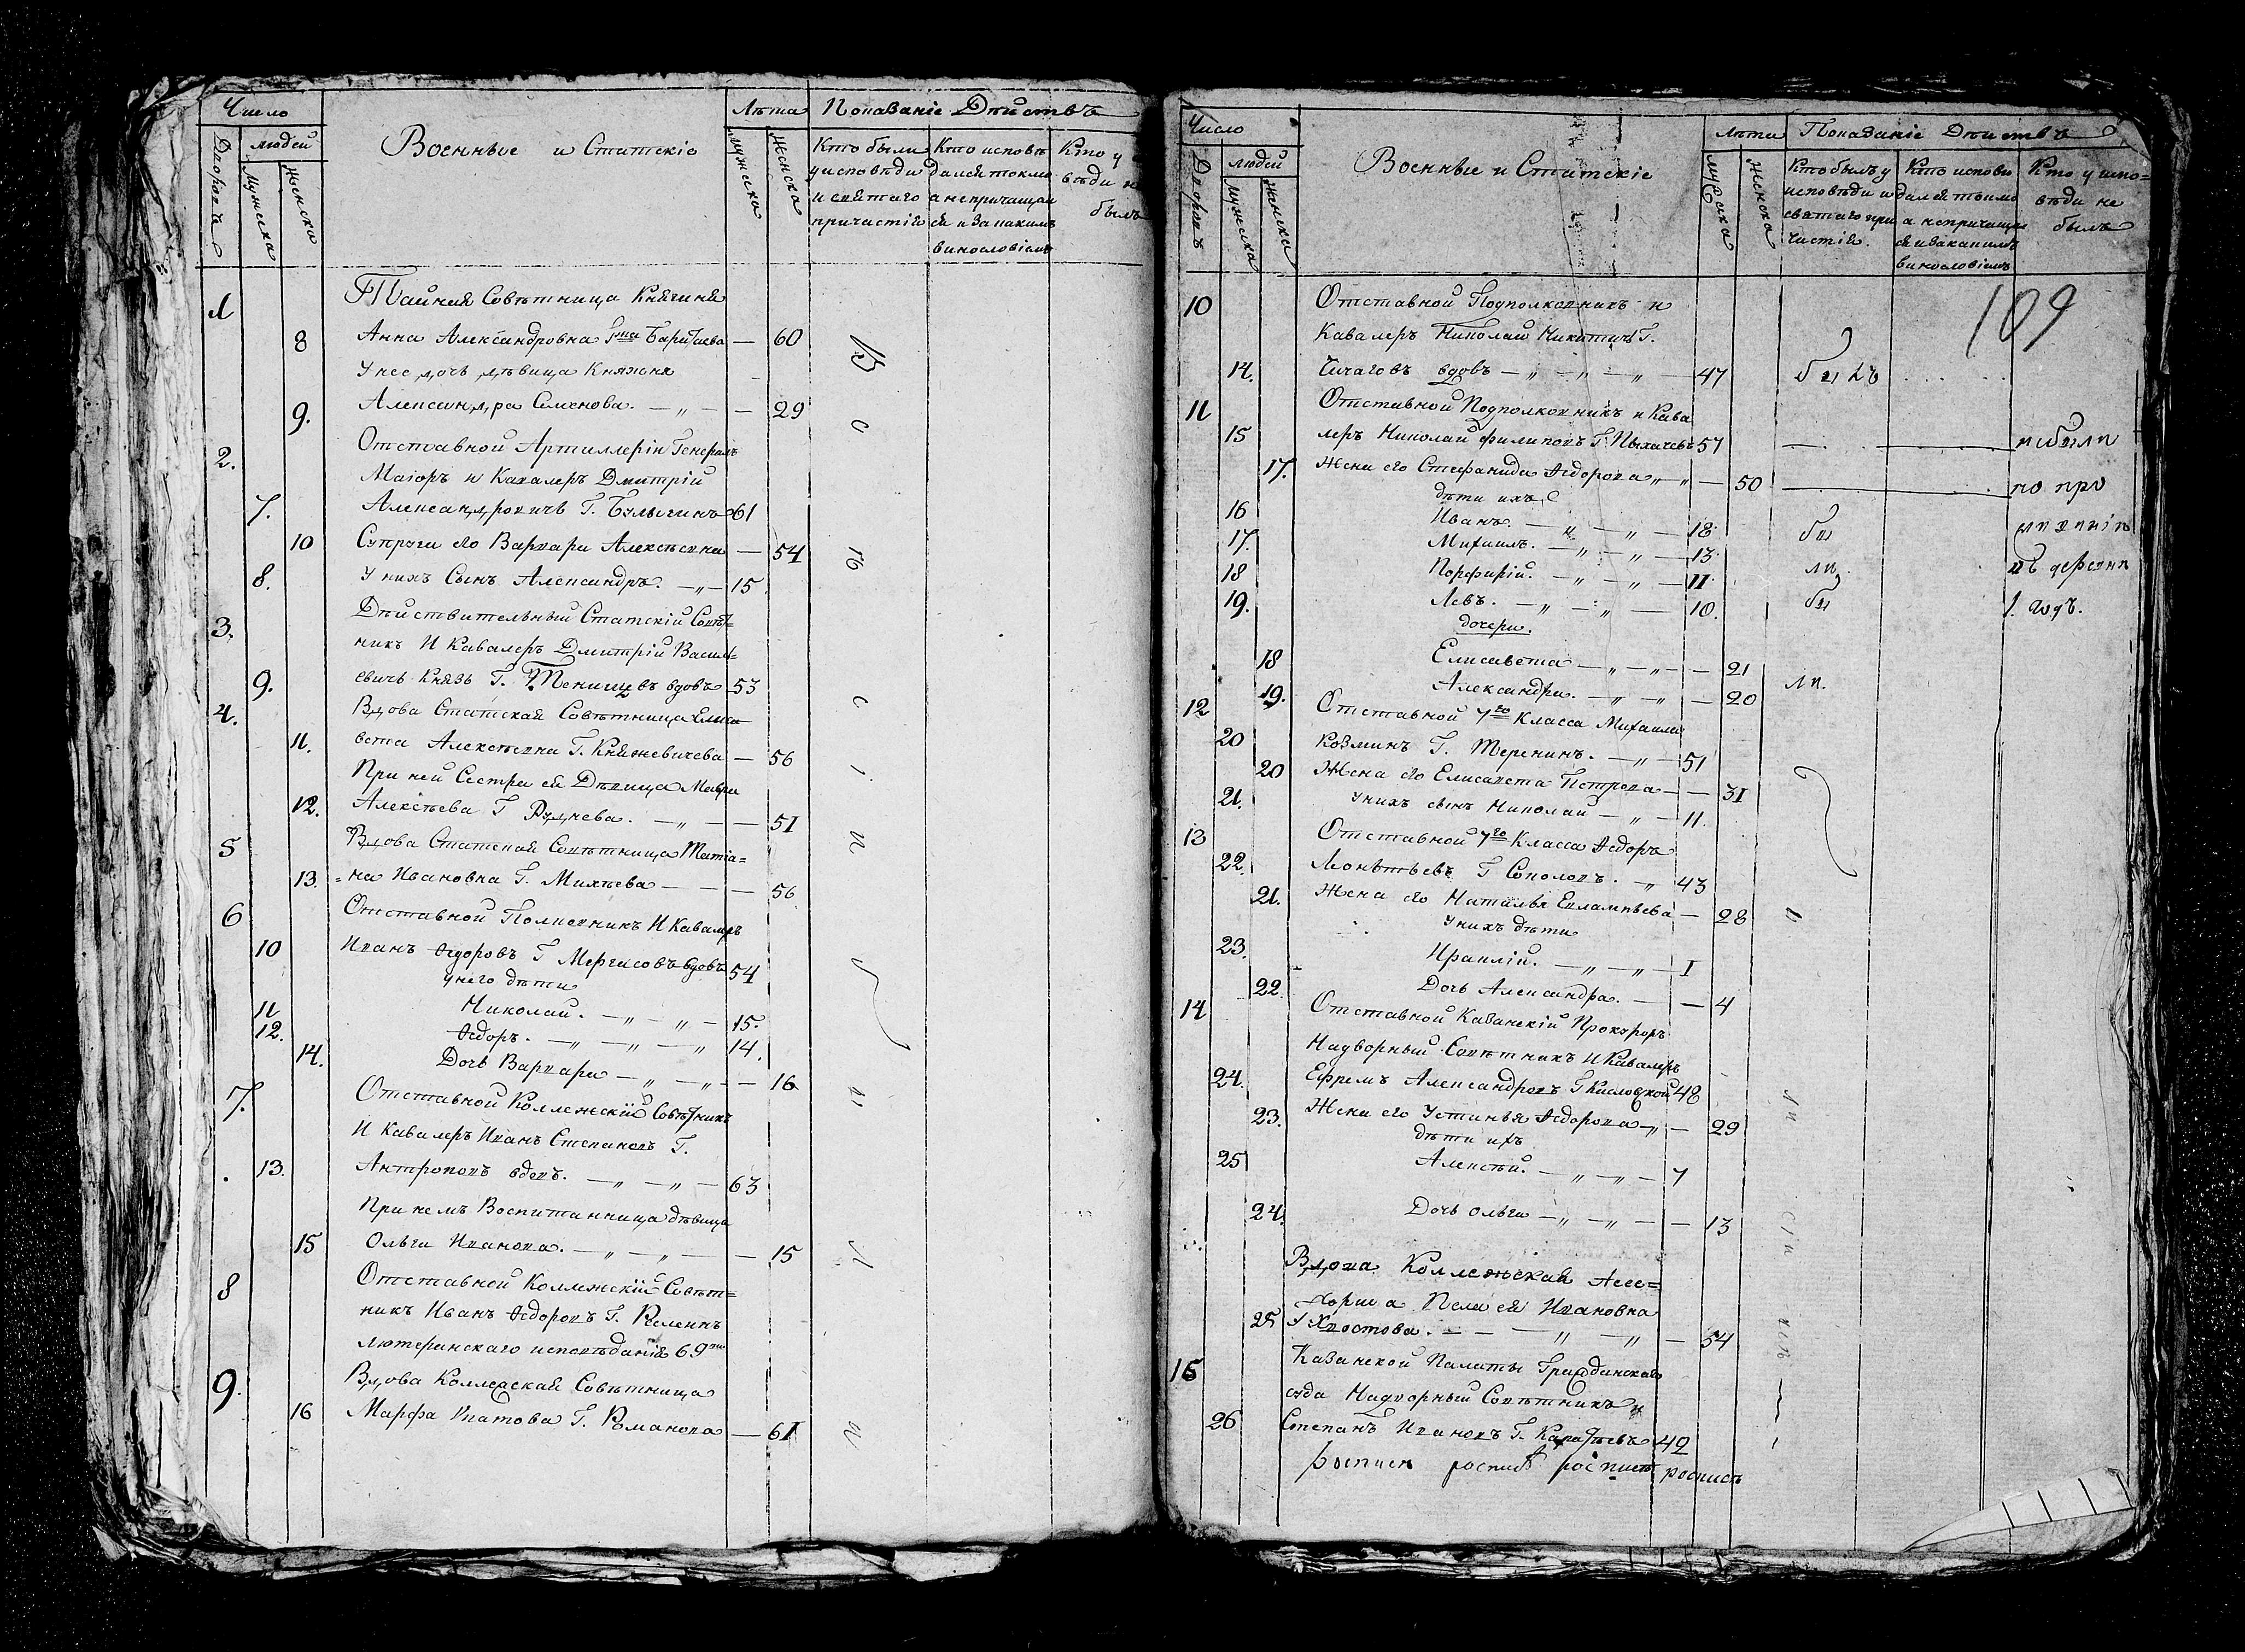 Число
людей
Дворовъ
Мужеска
Женска
Военные и Статскіе
Лѣта
мужска
женска
Показаніе Дѣйствъ
Кто были
у исповѣди
и святаго
причастія
Кто исповѣ
дался токмо
а не причащал
ся и за какимъ
винословіемъ
Кто у
вѣди н
былъ
1
Тайная Совѣтница Княгиня
8 Анна Александровна Г.жа Баратаева — 60
У нее дочь дѣвица Княжна
9. Александра Семенова. — „ — — 29
2. Отставной Артиллеріи Генералъ
Маіоръ и Кавалеръ Дмитрій
7. Александровичъ Г. Булыгинъ 61
10 Супруга его Варвара Алексѣевна — 54
8. У нихъ Сынъ Александръ. — „ — 15
3. Дѣйствительный Статскій Совѣт=
никъ И Кавалеръ Дмитрій Василь=
9. евичъ Князь Г. Тенишевъ вдовъ 53
4. Вдова Статская Совѣтница Елиса
11. вета Алексѣевна Г. Княжевичева — 56
При ней Сестра ея Дѣвица Мавра
12. Алексѣева Г Руднева. — „ — — 51
5 Вдова Статская Совѣтница Татіа=
13. =на Ивановна Г. Михѣева — — — 56
6 Отставной Полковникъ И Кавалеръ
10 Иванъ Ѳедоровъ Г Мергасовъ вдовъ 54
у него дѣти
11 Николай. — „ — „ — 15.
12. Ѳедоръ. — „ — „ — „ 14.
14. Дочь Варвара — „ — „ — — 16
7. Отставной Коллежскій Совѣтникъ
И Кавалеръ Иванъ Степановъ Г.
13. Антроповъ вдовъ. — „ — „ — 63
При немъ Воспитанница дѣвица
15 Ольга Иванова. — „ — „ — — 15
8 Отставной Коллежскій Совѣт=
никъ Иванъ Ѳедоровъ Г.
лютеранскаго исповѣданія 69
9. Вдова Коллежская Совѣтница
16 Марфа Ипатова Г. Романова — 61
Число
людей
Дворовъ
Мужеска
Женска
Военные и Статскіе
Лѣта
мужска
женска
Показаніе Дѣйствъ
Кто былъ у
исповѣди и
святаго при
частія.
Кто исповѣ
дался токмо
а не причащал
ся и за какимъ
винословіемъ
Кто у испо=
вѣди не
былъ
109
10 Отставной Подполковникъ и
Кавалеръ Николай Никитичъ Г.
14. Чичаговъ вдовъ — „ — „ — „ — 47 былъ
11 Отставной Подполковникъ и Кава
15 леръ Николай Филиповъ Г. Пыхачевъ 57 не были
17. Жена его Стефанида Ѳедорова „ „ — 50 по про
дѣти ихъ
16 Иванъ. — „ — „ — 18. бы
17. Михаилъ. — „ — „ — 13. ли въ деревни
18 Порфирій. — „ — „ — 11. бы
19. Левъ. — „ — „ — 10. 1. годъ.
дочери.
18 Елисавета — „ — „ — — 21 ли.
19. Александра. — „ — „ — 20
12 Отставной 7го Класса Михаила
20 Козминъ Г. Теренинъ. — „ — 51
20 Жена его Елисавета Петрова — — 31
21. У нихъ сынъ Николай — „ — 11.
13 Отставной 7го Класса Ѳедоръ
22. Леонтьевъ Г Соколовъ. — „ 43
21. Жена его Наталья Евлампьева — 28
У нихъ дѣти
23. Ираклій. — „ — „ — 1
22. Дочь Александра. — — 4
14 Отставной Казанскій Прокуроръ
Надворный Совѣтникъ И Кавалеръ
24. Ефремъ Александровъ Г Кисловской 48
23. Жена его Устинья Ѳедорова — „ — 29
дѣти ихъ
25 Алексѣй. — „ — „ — 7
24. Дочь Ольга — „ — „ — — 13
Вдова Коллежская Ассе=
Ивановна
25 Г Хвостова. — — — „ — „ — 54
15 Казанской Палаты Гражданскаго
суда Надворный Совѣтникъ
26 Степанъ Ивановъ Г. 42
роспись роспись роспись роспись